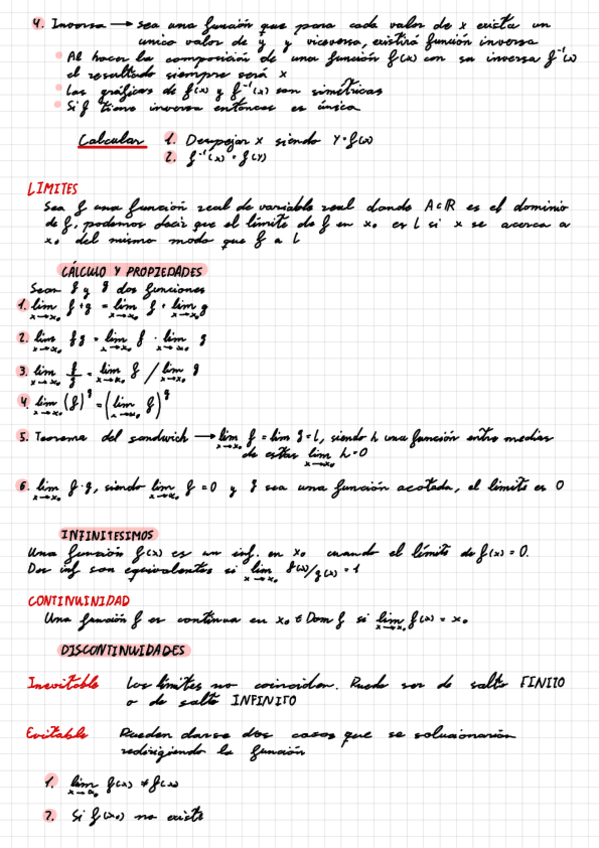 4. Inversa → sea una función que para cada valor de x exista un
unico valor de y y viceversa, existirá función inversa
Al hacer la composición de una función f(x) con su inversa f⁻¹(x)
el resultado siempre será x
Las gráficas de f(x) y f⁻¹(x) son simétricas
Si f tiene inversa entonces es única
Calcular 1. Despejar x siendo y=f(x)
2. f⁻¹(x) = f(y)
LIMITES
Sea f una función real de variable real donde A⊂ℝ es el dominio
de f, podemos decir que el límite de f en x₀ es L si x se acerca a
x₀ del mismo modo que f a L
CÁLCULO Y PROPIEDADES
Sean f y g dos funciones
1. lim x→x₀ f+g = lim x→x₀ f + lim x→x₀ g
2. lim x→x₀ f·g = lim x→x₀ f · lim x→x₀ g
3. lim x→x₀ f/g = lim x→x₀ f / lim x→x₀ g
4. lim x→x₀ (f)^g = (lim x→x₀ f)^g
5. Teorema del sandwich → lim x→x₀ f = lim g = L, siendo h una función entre medias
de estas lim x→x₀ h=0
6. lim x→x₀ f·g, siendo lim x→x₀ f=0 y g sea una función acotada, el límite es 0
INFINITESIMOS
Una función f(x) es un inf. en x₀ cuando el límite de f(x)=0.
Dos inf son equivalentes si lim x→x₀ f(x)/g(x)=1
CONTINUINIDAD
Una función f es continua en x₀ ∈ Dom f si lim x→x₀ f(x) = x₀
DISCONTINUIDADES
Inevitable Los límites no coinciden. Puede ser de salto FINITO
o de salto INFINITO
Evitable Pueden darse dos casos que se solucionarían
redirigiendo la función
1. lim x→x₀ f(x) ≠ f(x₀)
2. Si f(x₀) no existe